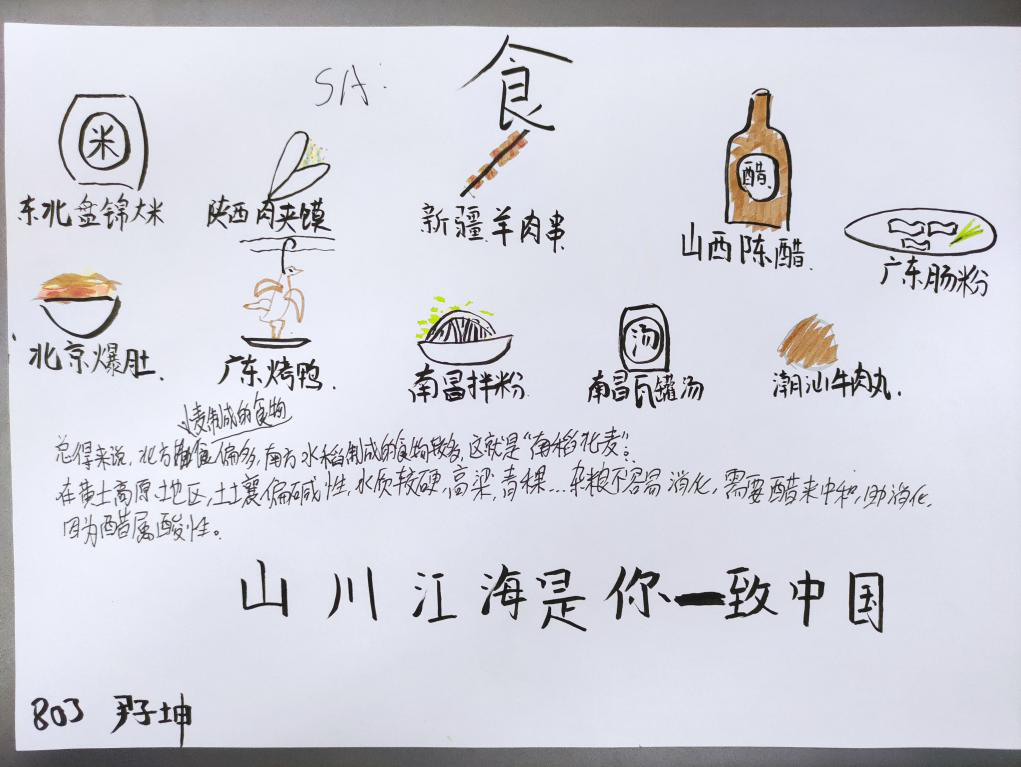 SA:
食
米
醋
东北盘锦大米
陕西肉夹馍
新疆羊肉串
山西陈醋.
广东肠粉
汤
北京爆肚.
广东烤鸭.
南昌拌粉.
南昌瓦罐汤
潮汕牛肉丸.
小麦制成的食物
总得来说,北方偏多,南方水稻制成的食物较多,这就是“南稻北麦”。
在黄土高原地区,土壤偏碱性,水质较硬,高梁,青稞...杂粮不容易消化,需要醋来中和,助消化,
因为醋属酸性。
山川江海是你一致中国
803 尹子坤